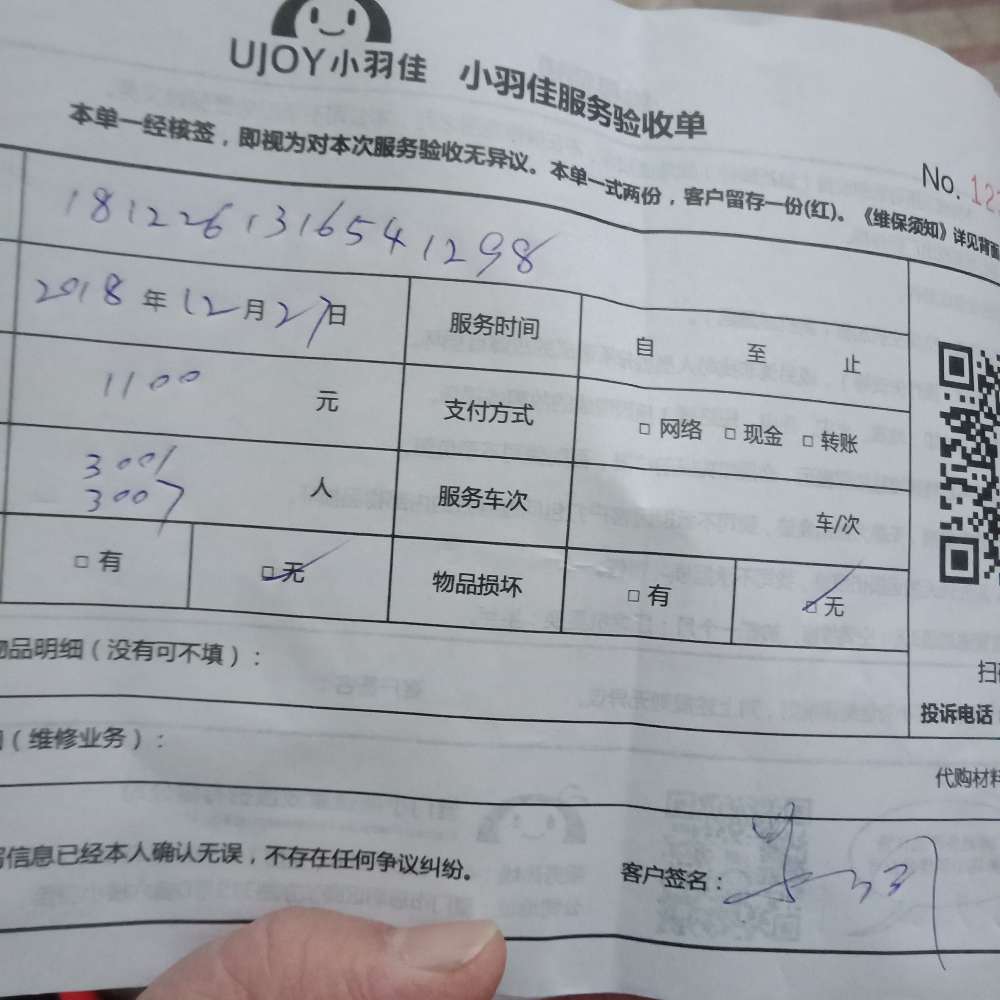 UJOY小羽佳 小羽佳服务验收单
本单一经核签，即视为对本次服务验收无异议。本单一式两份，客户留存一份(红)。《维保须知》详见背面
No. 12
1812261316541298
2018年12月27日 服务时间 自 至 止
1100 元 支付方式 □ 网络 □ 现金 □ 转账
3001
3007 人 服务车次 车/次
□ 有 □ 无 物品损坏 □ 有 □ 无
物品明细（没有可不填）：
扫
投诉电话
（维修业务）：
代购材料
信息已经本人确认无误，不存在任何争议纠纷。 客户签名：